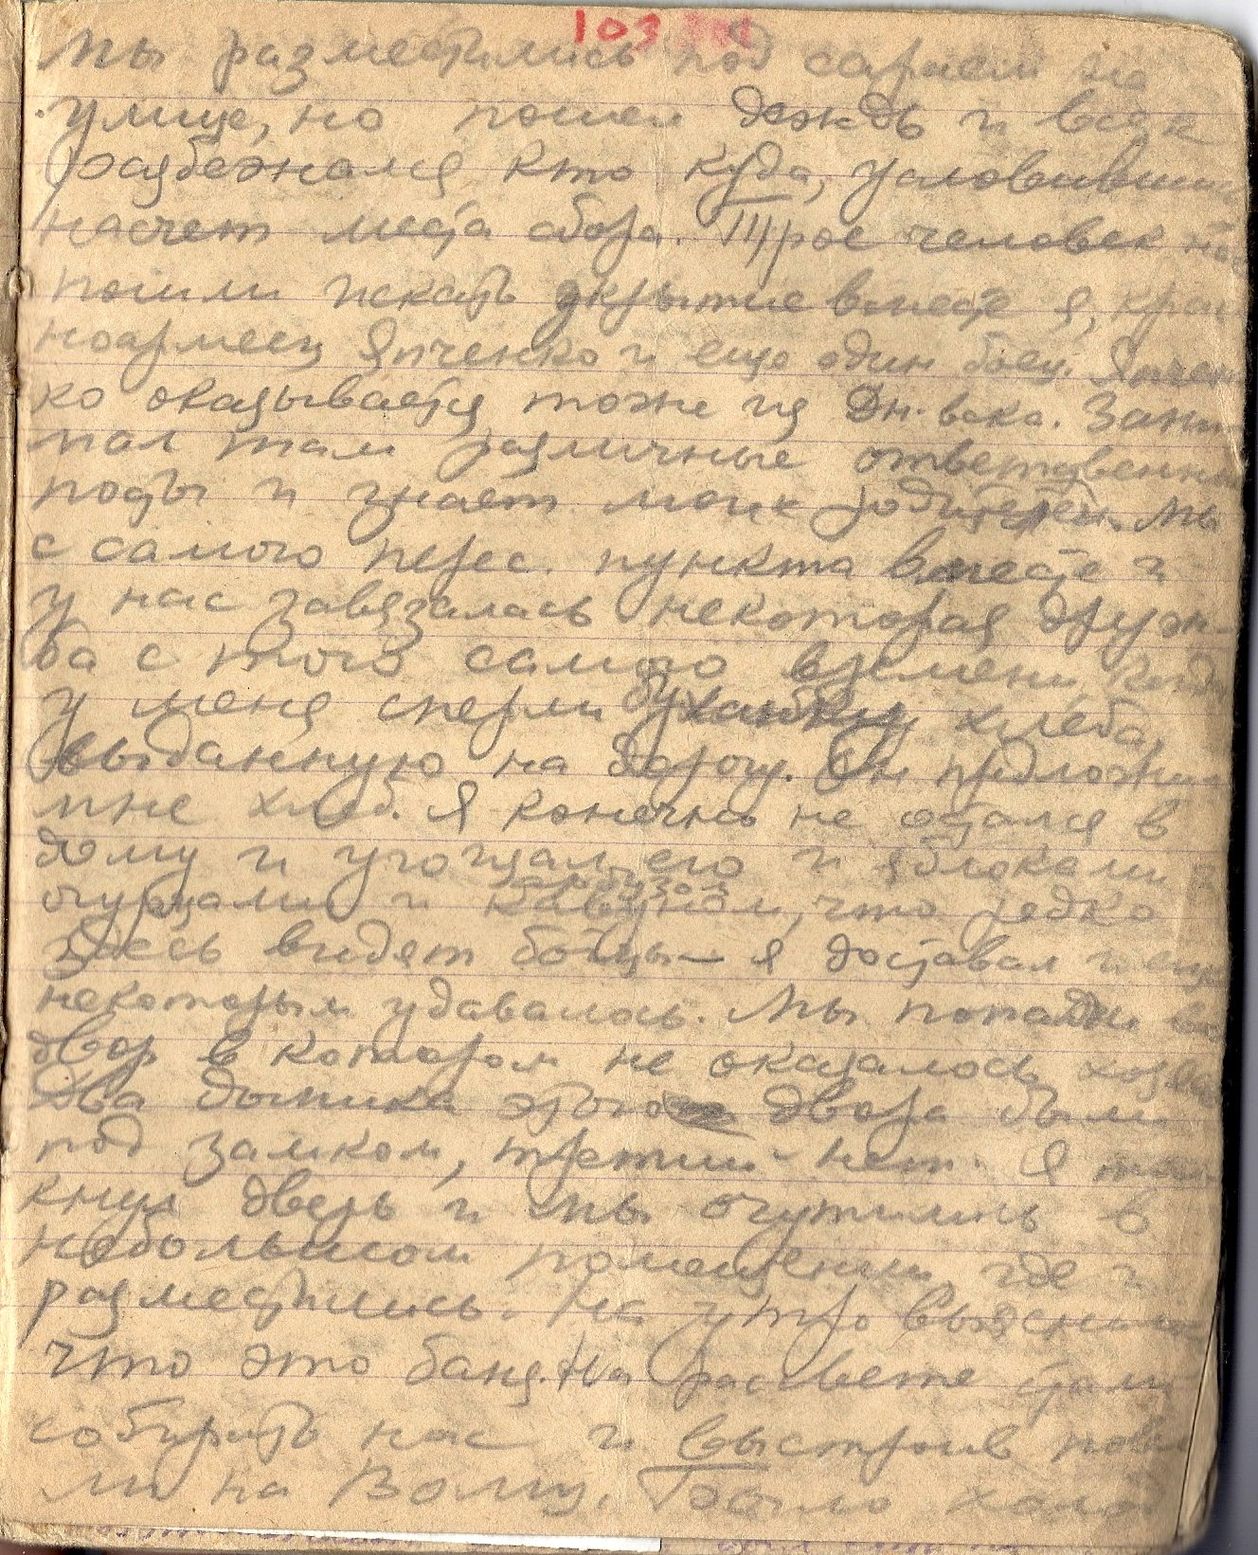 103
Мы разместились под сараем на
улице, но пошел дождь и всяк
разбежался кто куда, условившись
насчет места сбора. Трое человек нас
пошли искать укрытие вместе я, крас
ноармеец Япченко и еще один боец. Япчен
ко оказывается тоже из Дн-вска. Зани
мал там различные ответственные
посты и знает моих родителей. Мы
с самого перес. пункта вместе и
у нас завязалась некоторая друж-
ба с того самого времени, когда
у меня сперли буханку хлеба,
выданную на дорогу. Он предложил
мне хлеб. Я конечно не остался в
долгу и угощал его и яблоками и
огурцами и арбузом кавуном, что редко
здесь видят бойцы – я доставал и еще
некоторым удавалось. Мы попали во
двор в котором не оказалось хозяев
Два домика этого двора были
под замком, третий - нет. Я тол
кнул дверь и мы очутились в
небольшом помещении, где и
разместились. На утро выяснилось
что это баня. На рассвете стали
собирать нас и выстроив пове
ли на Волгу. Было холод